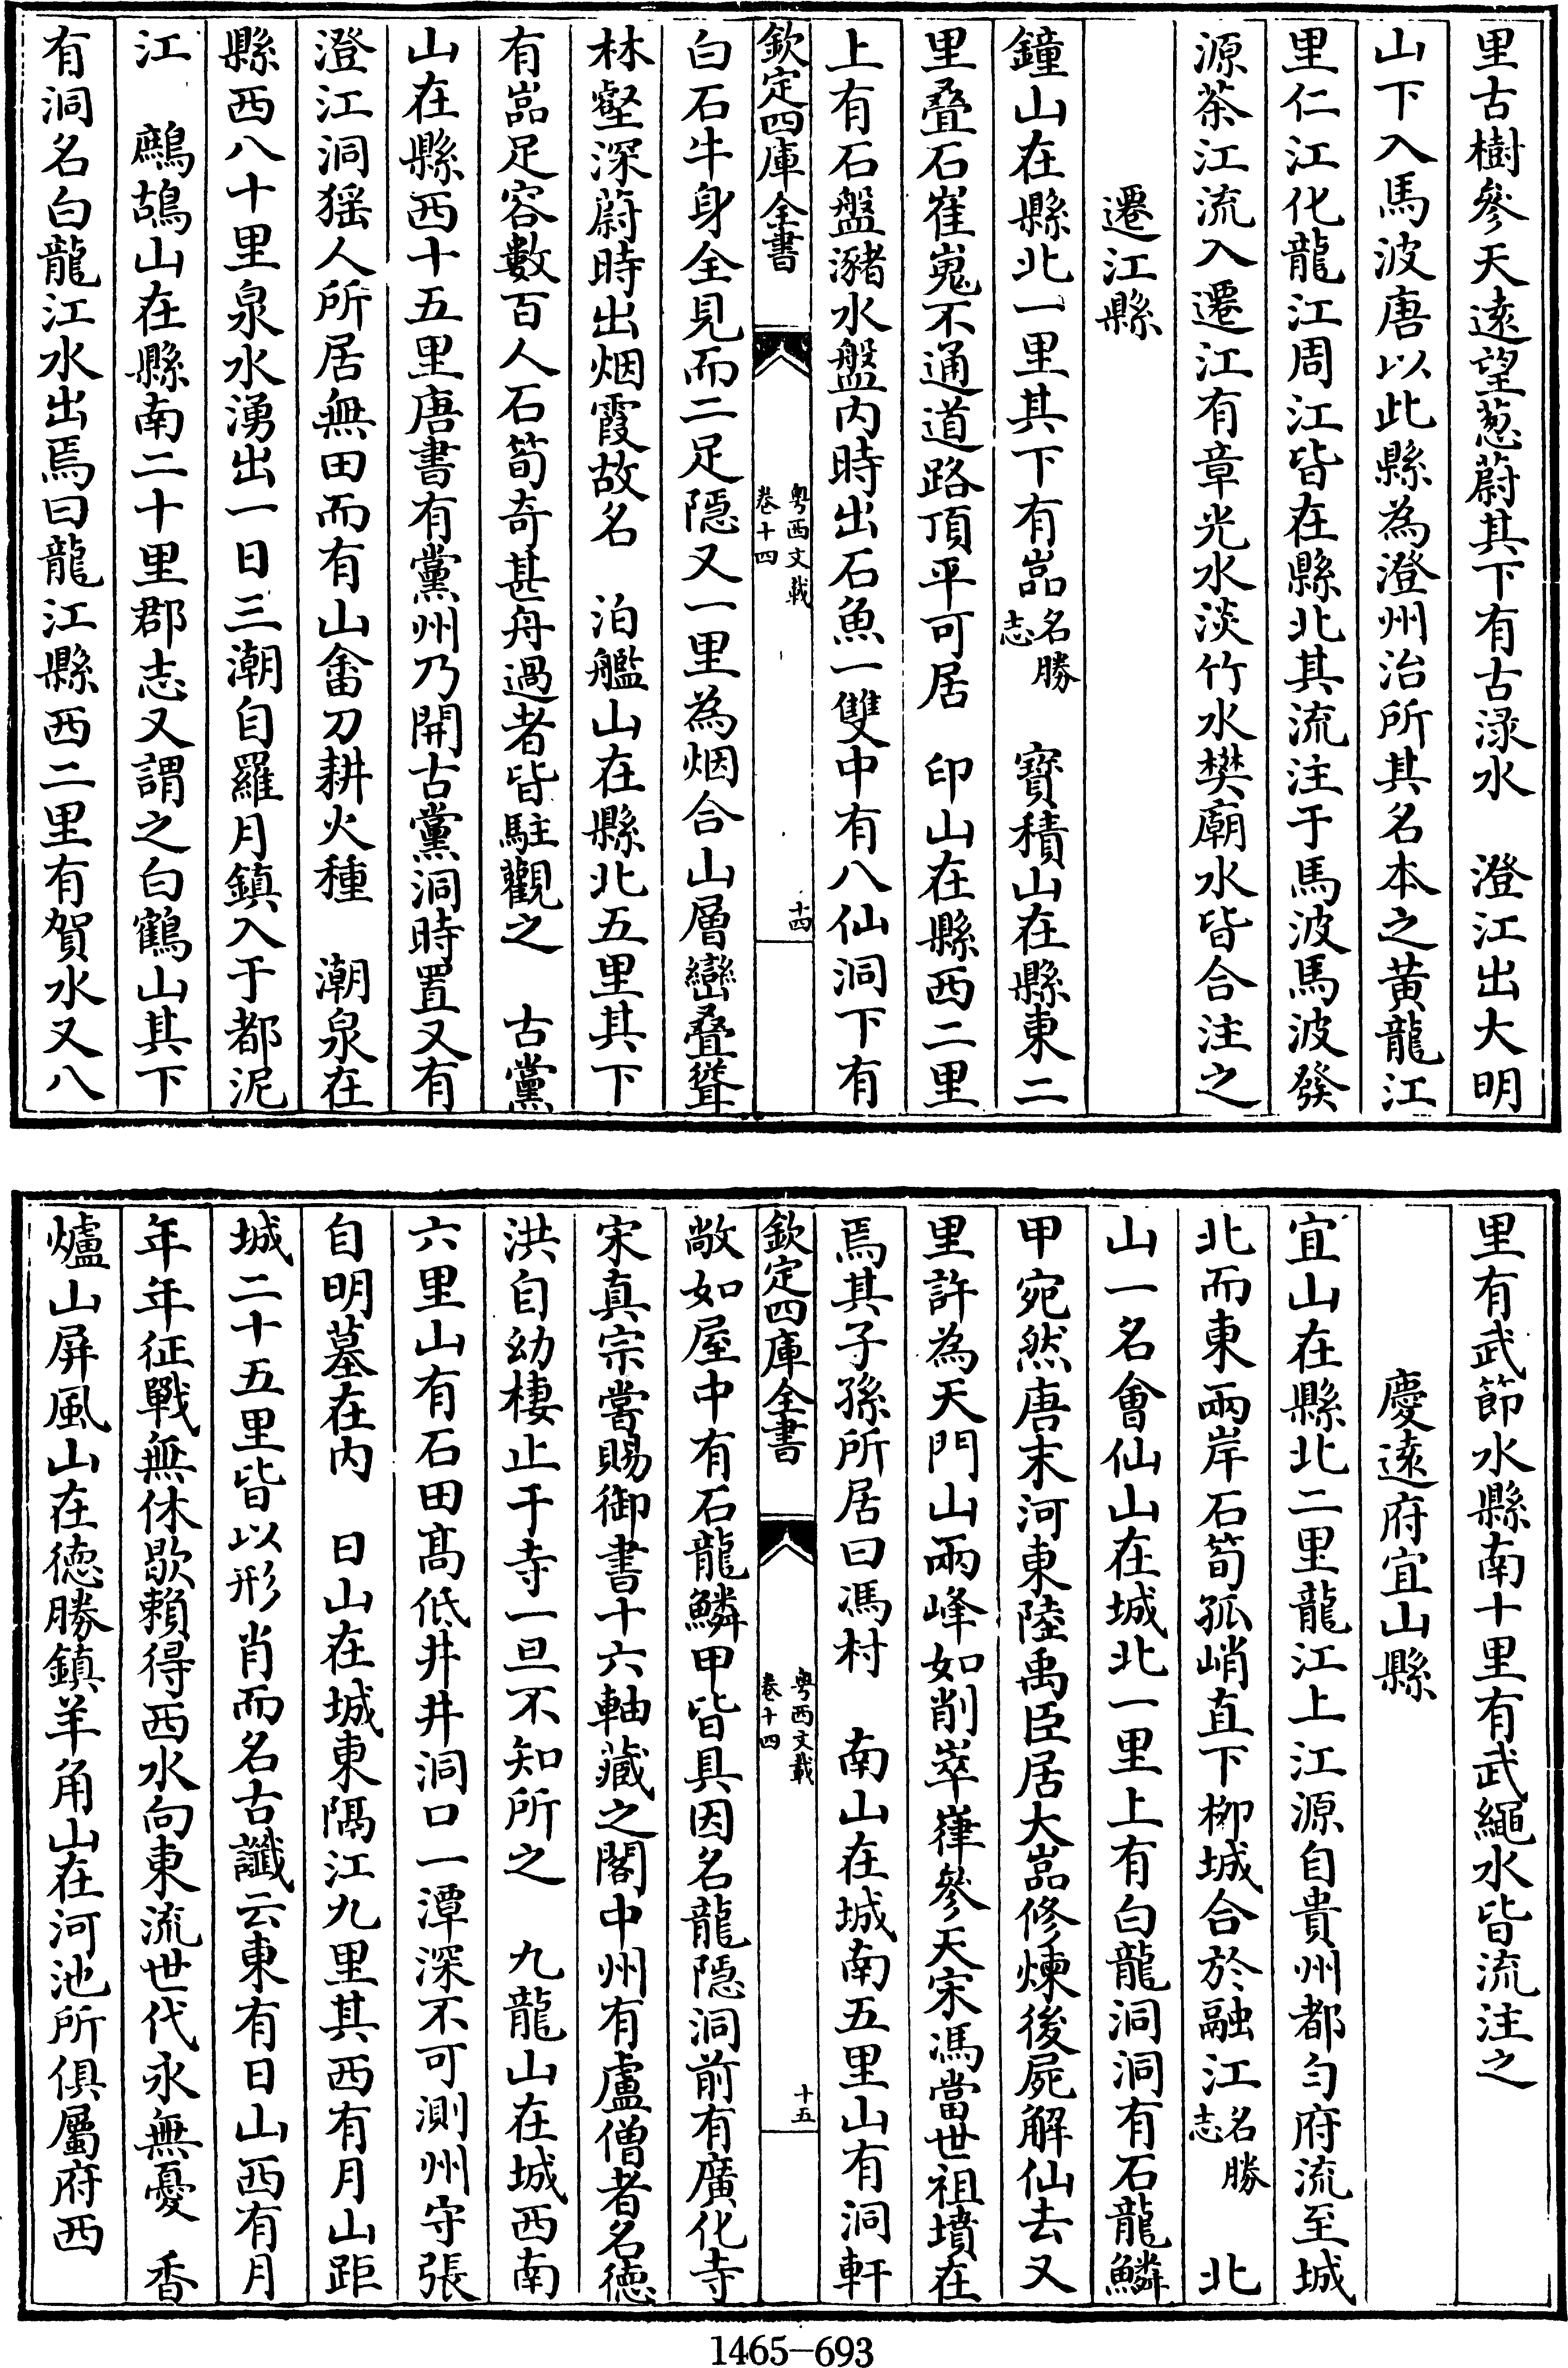 里古樹參天遠望葱蔚其下有古淥水　澄江出大明
山下入馬波唐以此縣為澄州治所其名本之黄龍江
里仁江化龍江周江皆在縣北其流注于馬波馬波發
源茶江流入遷江有章光水淡竹水樊廟水皆合注之
遷江縣
鐘山在縣北一里其下有嵓名勝志　寳積山在縣東二
里叠石崔嵬不通道路頂平可居　印山在縣西二里
上有石盤瀦水盤内時出石魚一雙中有八仙洞下有
欽定四庫全書
粤西文載
卷十四
十四
白石牛身全見而二足隠又一里為烟合山層巒叠聳
林壑深蔚時出烟霞故名　泊艦山在縣北五里其下
有嵓足容數百人石筍奇甚舟過者皆駐觀之　古黨
山在縣西十五里唐書有黨州乃開古黨洞時置又有
澄江洞猺人所居無田而有山畬刀耕火種　潮泉在
縣西八十里泉水湧出一日三潮自羅月鎮入于都泥
江　鷓鴣山在縣南二十里郡志又謂之白鶴山其下
有洞名白龍江水出焉曰龍江縣西二里有賀水又八
里有武節水縣南十里有武繩水皆流注之
慶遠府宜山縣
宜山在縣北二里龍江上江源自貴州都匀府流至城
北而東兩岸石筍孤峭直下柳城合於融江名勝志　北
山一名會仙山在城北一里上有白龍洞洞有石龍鱗
甲宛然唐末河東陸禹臣居大嵓修煉後屍解仙去又
里許為天門山兩峰如削崒嵂參天宋馮當世祖墳在
焉其子孫所居曰馮村　南山在城南五里山有洞軒
欽定四庫全書
粤西文載
卷十四
十五
敞如屋中有石龍鱗甲皆具因名龍隠洞前有廣化寺
宋真宗嘗賜御書十六軸藏之閣中州有盧僧者名德
洪自幼棲止于寺一旦不知所之　九龍山在城西南
六里山有石田髙低井井洞口一潭深不可測州守張
自明墓在内　日山在城東隔江九里其西有月山距
城二十五里皆以形肖而名古讖云東有日山西有月
年年征戰無休歇賴得西水向東流世代永無憂　香
爐山屏風山在德勝鎮羊角山在河池所俱屬府西
1465-693